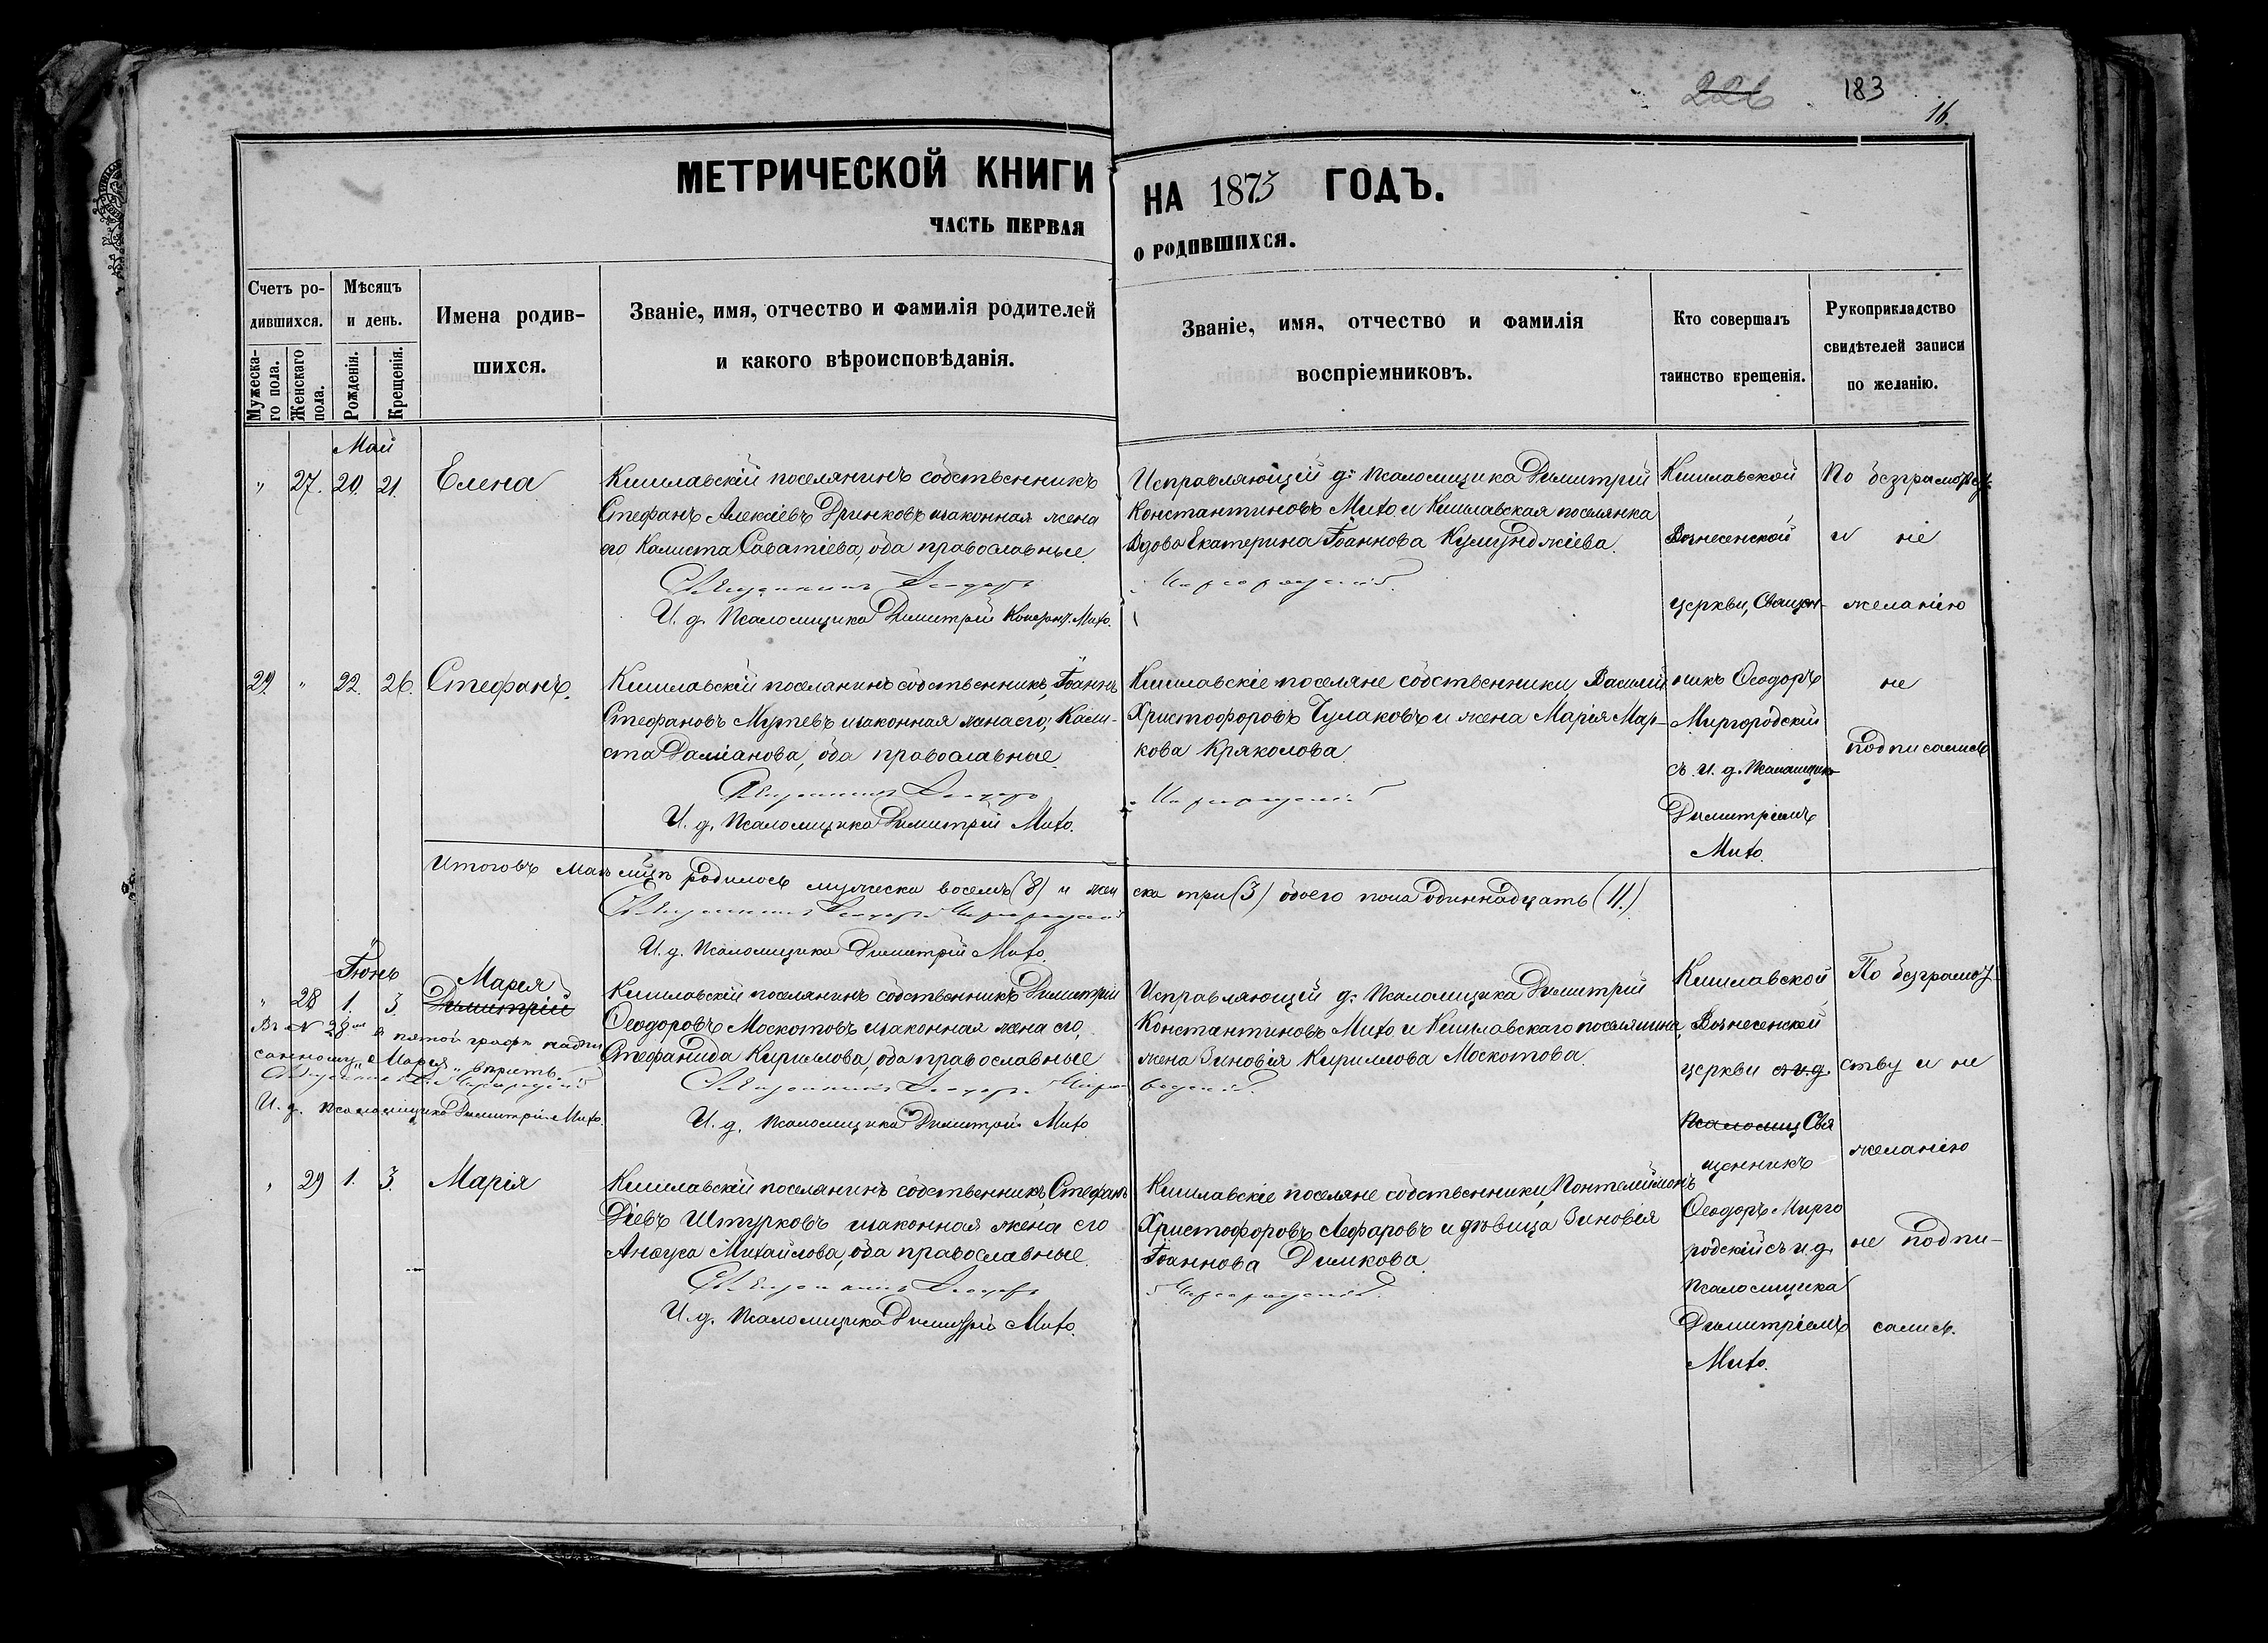 226 183
16.
МЕТРИЧЕСКОЙ КНИГИ НА 1873 ГОДЪ.
ЧАСТЬ ПЕРВАЯ О РОДИВШИХСЯ.
Счетъ ро-
дившихся.
Мужеска-
го пола.
Женскаго
пола.
Мѣсяцъ
и день.
Рожденія.
Крещенія.
Имена родив-
шихся.
Званіе, имя, отчество и фамилія родителей
и какого вѣроисповѣданія.
Званіе, имя, отчество и фамилія
воспріемниковъ.
Кто совершалъ
таинство крещенія.
Рукоприкладство
свидѣтелей записи
по желанію.
Май
" 27. 20. 21. Елена
Кишлавскій поселянинъ собственникъ
Стефанъ Алексіевъ Дринковъ и законная жена
его Калиста Саватіева, оба православные.
Священникъ Ѳеодоръ
И. д. Псаломщика Димитрій Конст. Мито.
Исправляющій д: Псаломщика Димитрій
Константиновъ Мито и Кишлавская поселянка
Вдова Екатерина Іоаннова Кумунджіева.
Миргородскій
Кишлавской
Вознесенской
церкви, Священ-
По безграмотству
и не
желанію
29. " 22. 26. Стефанъ.
Кишлавскій поселянинъ собственникъ, Іоаннъ
Стефановъ Мутевъ и законная жена его, Кали-
ста Даміанова, оба православные.
Священникъ Ѳеодоръ
И. д. Псаломщика Димитрій Мито.
Кишлавскіе поселяне собственники, Василій
Христофоровъ Чулаковъ и жена Марія Мар-
кова Кряколова.
Миргородскій
никъ Ѳеодоръ
Миргородскій
съ И. д. Псаломщика
Димитріемъ
Мито.
не
подписались
Итоговъ Маѣ мцѣ родилось мужеска восемь (8) и жен
ска три (3) обоего пола одиннадцать (11.)
Священникъ Ѳеодоръ Миргородскій
И. д. Псаломщика Димитрій Мито.
Іюнь
" 28 1. 3. Марея
Димитрій
Въ № 28мъ в пятой графѣ надпи
санному „Марея" вѣрить.
Священникъ Миргородскій
И. д. Псаломщика Димитрій Мито.
Кишлавскій поселянинъ собственникъ Димитрій
Ѳеодоровъ Москотовъ и законная жена его,
Стефанида Кириллова, оба православные
Священникъ Ѳеодоръ Мирго
И. д. Псаломщика Димитрій Мито
Исправляющій д: Псаломщика Димитрій
Константиновъ Мито и Кишлавскаго поселянина,
жена Зиновія Кириллова Москотова.
родскій
Кишлавской
Вознесенской
церкви и.д.
Псаломщ Свя
щенникъ
Ѳеодоръ Мирго
родскій съ и.д.
Псаломщика
Димитріемъ
Мито.
По безграмот
ству и не
желанію
не подпи-
сались.
" 29 1. 3. Марія
Кишлавскій поселянинъ собственникъ, Стефанъ
Діевъ Штурковъ и законная жена его
Анѳуса Михайлова, оба православные.
Священникъ Ѳеодоръ
И. д. Псаломщика Димитрій Мито.
Кишлавскіе поселяне собственники, Понтелеймонъ
Христофоровъ Лефаровъ и дѣвица Зиновія
Іоаннова Димкова.
Миргородскій.